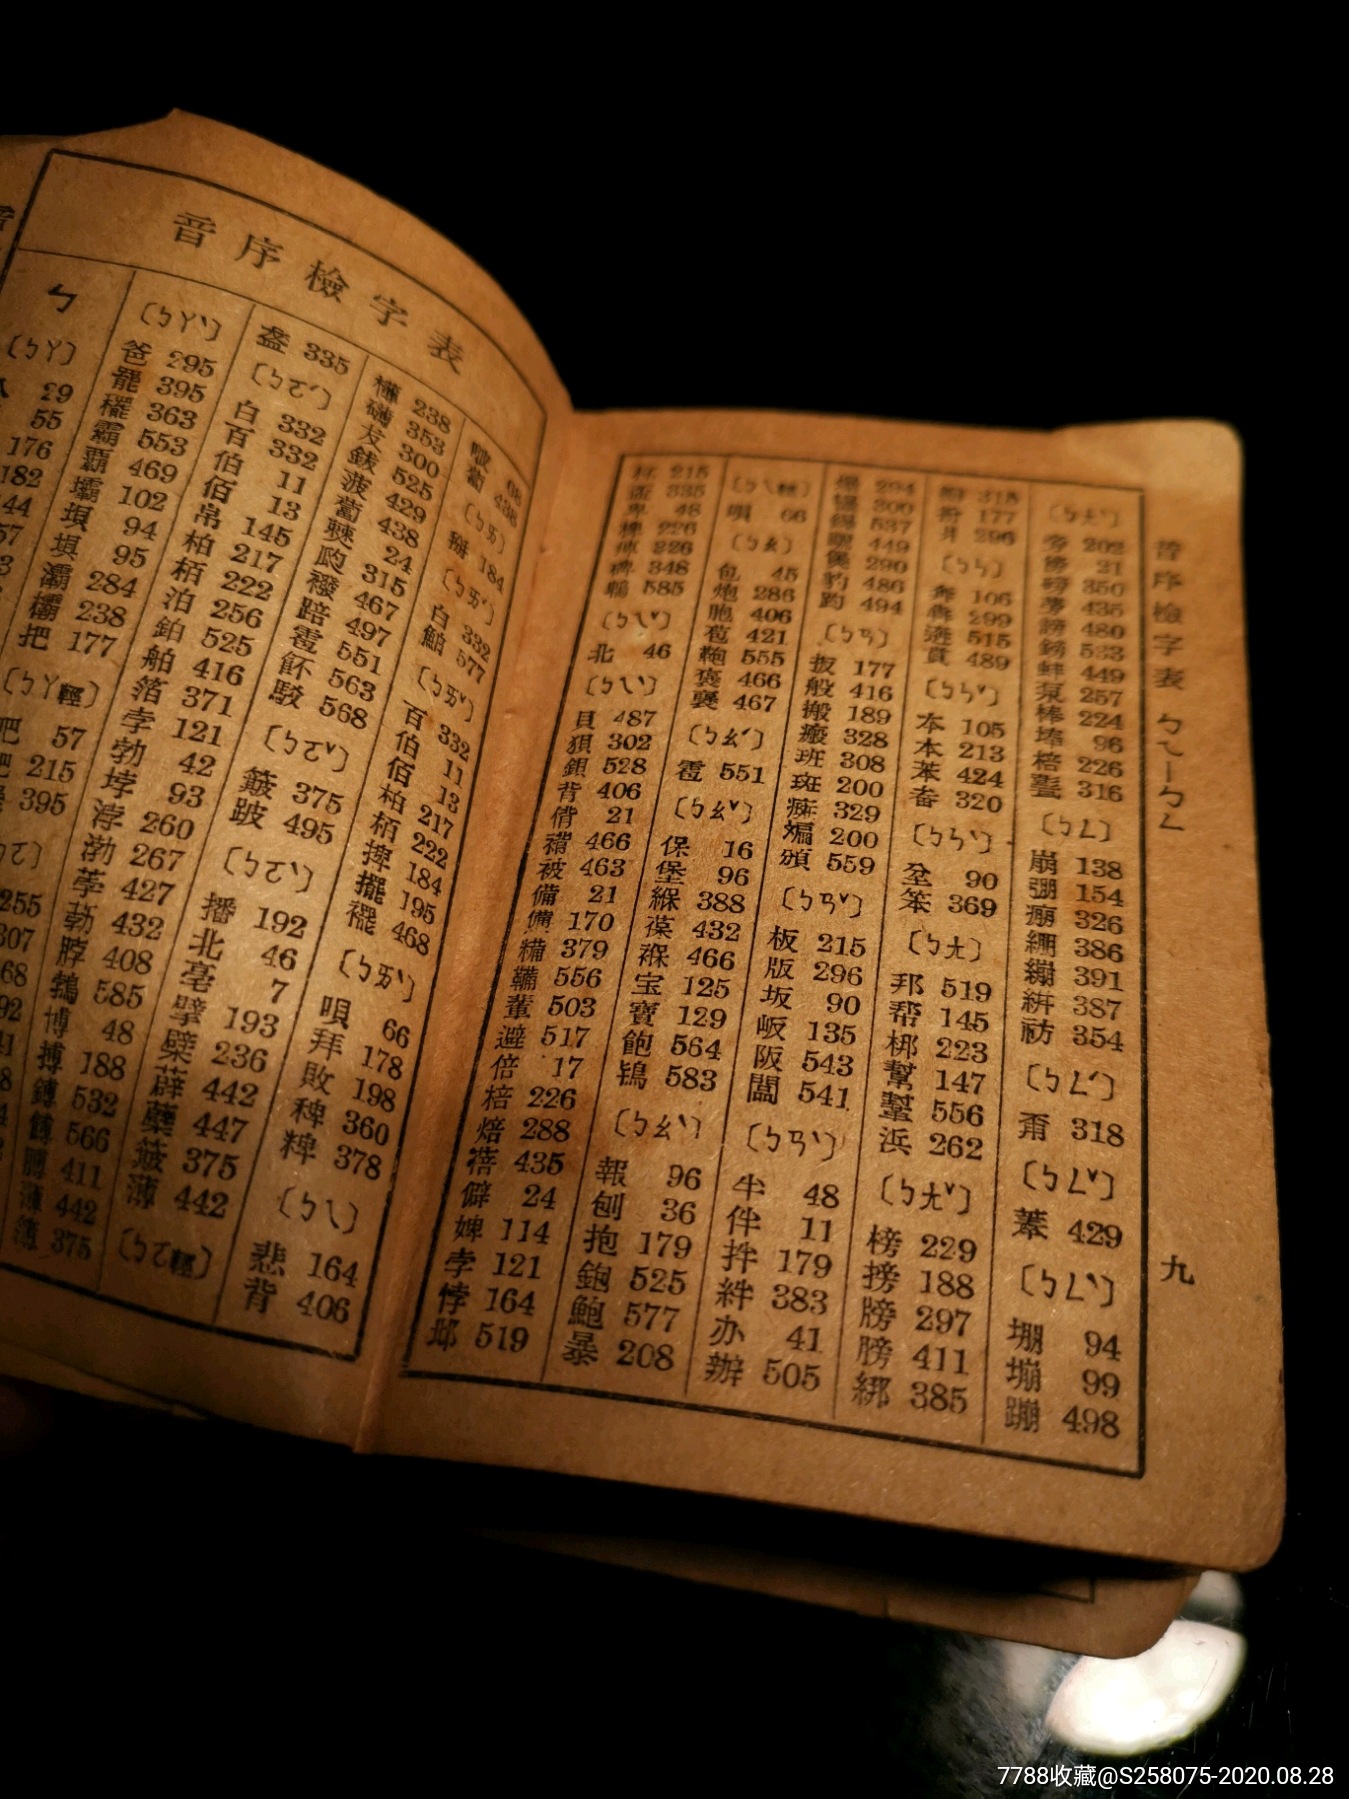 音序檢字表
ㄅ
〔ㄅㄚ〕
29
55
176
182
44
57
吧 57
杷 215
395
255
307
〔ㄅㄚˋ〕
爸 295
罷 395
䆉 363
霸 553
覇 469
壩 102
垻 94
埧 95
灞 284
欛 238
把 177
〔ㄅㄚ輕〕
盋 335
〔ㄅㄛˊ〕
白 332
百 332
伯 11
佰 13
帛 145
柏 217
栢 222
泊 256
鉑 525
舶 416
箔 371
孛 121
勃 42
浡 260
渤 267
荸 427
脖 408
鵓 585
博 48
搏 188
鎛 532
餺 566
膊 411
薄 442
簿 375
238
礴 353
犮 300
鈸 525
菠 429
蔔 438
僰 24
瓝 315
襏 467
踣 497
雹 551
鉢 563
駁 568
〔ㄅㄛˇ〕
簸 375
跛 495
〔ㄅㄛˋ〕
播 192
北 46
亳 7
擘 193
檗 236
薜 442
蘗 447
簸 375
薄 442
〔ㄅㄛ輕〕
啵 68
蔔 438
〔ㄅㄞ〕
掰 184
〔ㄅㄞˊ〕
白 332
鮊 577
〔ㄅㄞˇ〕
百 332
伯 11
佰 13
柏 217
栢 222
捭 184
擺 195
襬 468
〔ㄅㄞˋ〕
唄 66
拜 178
敗 198
稗 360
粺 378
〔ㄅㄟ〕
悲 164
背 406
杯 215
盃 335
卑 48
椑 226
碑 348
鵯 585
〔ㄅㄟˇ〕
北 46
〔ㄅㄟˋ〕
貝 487
狽 302
鋇 528
背 406
偝 21
褙 466
被 463
備 21
憊 170
糒 379
鞴 556
輩 503
避 517
倍 17
棓 226
焙 288
蓓 435
僻 24
婢 114
孛 121
悖 164
邶 519
〔ㄅㄟ輕〕
唄 66
〔ㄅㄠ〕
包 45
炮 286
胞 406
苞 421
鞄 555
褒 466
襃 467
〔ㄅㄠˊ〕
雹 551
〔ㄅㄠˇ〕
保 16
堡 96
緥 388
葆 432
褓 466
宝 125
寶 129
飽 564
鴇 583
〔ㄅㄠˋ〕
報 96
刨 36
抱 179
鉋 525
鮑 577
暴 208
爆 294
豹 486
趵 494
〔ㄅㄢ〕
扳 177
般 416
搬 189
瘢 328
班 308
斑 200
癍 329
斒 200
頒 559
〔ㄅㄢˇ〕
板 215
版 296
坂 90
岅 135
阪 543
闆 541
〔ㄅㄢˋ〕
半 48
伴 11
拌 179
絆 383
办 41
辦 505
瓣 315
扮 177
爿 296
〔ㄅㄣ〕
奔 106
犇 299
逩 515
賁 489
〔ㄅㄣˇ〕
本 105
本 213
苯 424
畚 320
〔ㄅㄣˋ〕
坌 90
笨 369
〔ㄅㄤ〕
邦 519
帮 145
梆 223
幫 147
鞤 556
浜 262
〔ㄅㄤˇ〕
榜 229
搒 188
牓 297
膀 411
綁 385
〔ㄅㄤˋ〕
旁 202
傍 21
磅 350
蒡 435
謗 480
鎊 533
蚌 449
泵 257
棒 224
埲 96
棓 226
316
〔ㄅㄥ〕
崩 138
弸 154
痭 326
綳 386
繃 391
絣 387
祊 354
〔ㄅㄥˊ〕
甭 318
〔ㄅㄥˇ〕
菶 429
〔ㄅㄥˋ〕
堋 94
塴 99
蹦 498
音序檢字表 ㄅㄟ—ㄅㄥ
九
7788收藏@S258075-2020.08.28